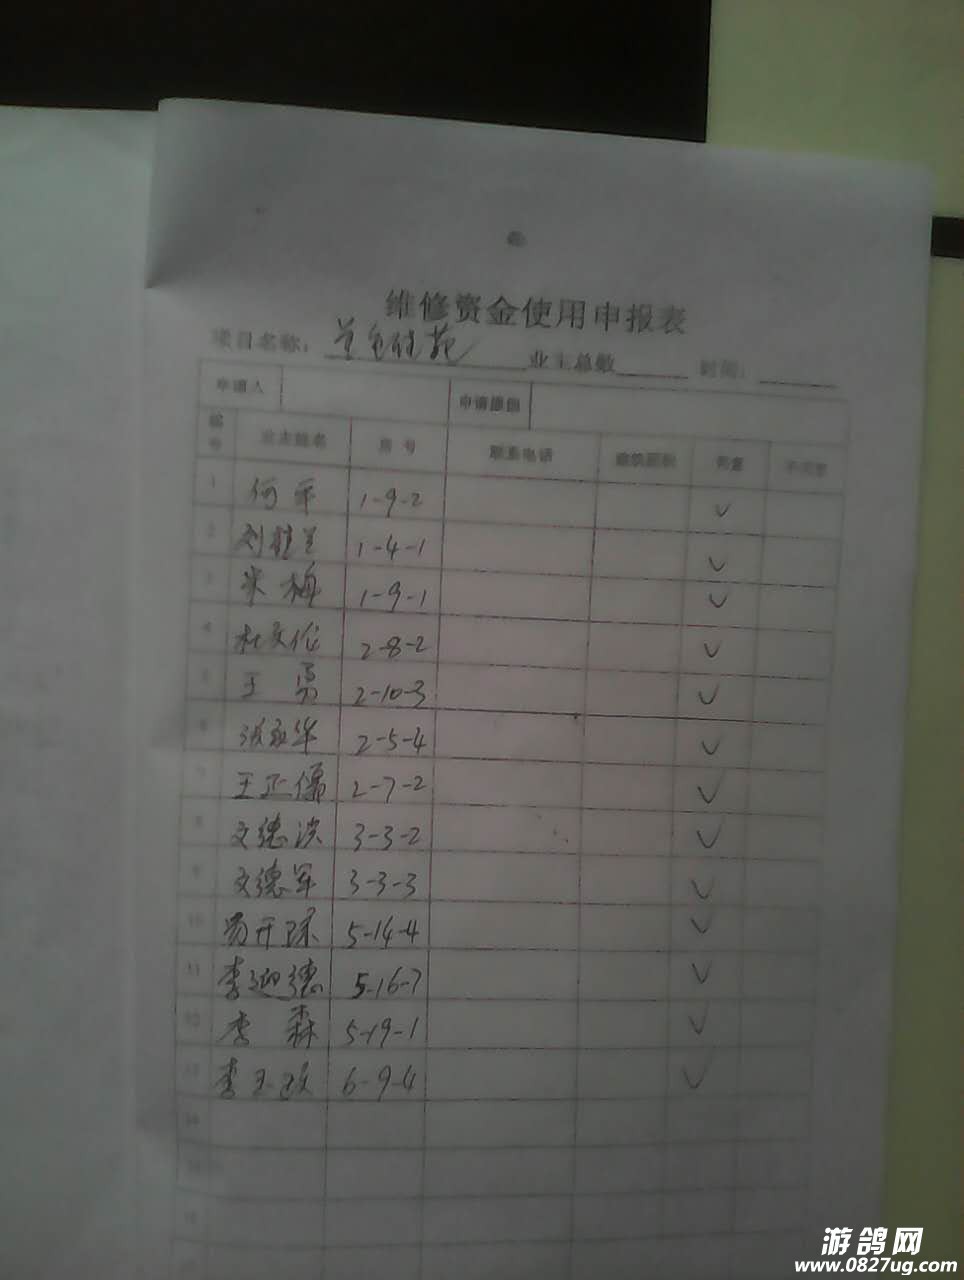 维修资金使用申报表
项目名称： 业主总数 时间：
申请人 申请原因
编号 业主姓名 房号 联系电话 建筑面积 同意 不同意
1 何平 1-9-2 ✓
2 刘桂兰 1-4-1 ✓
3 米梅 1-9-1 ✓
4 杜文伦 2-8-2 ✓
5 王勇 2-10-3 ✓
6 张永华 2-5-4 ✓
7 王正儒 2-7-2 ✓
8 文德洪 3-3-2 ✓
9 文德军 3-3-3 ✓
10 5-14-4 ✓
11 李迎德 5-16-7 ✓
12 李森 5-19-1 ✓
13 李 6-9-4 ✓
14
15
游鸽网
www.0827ug.com